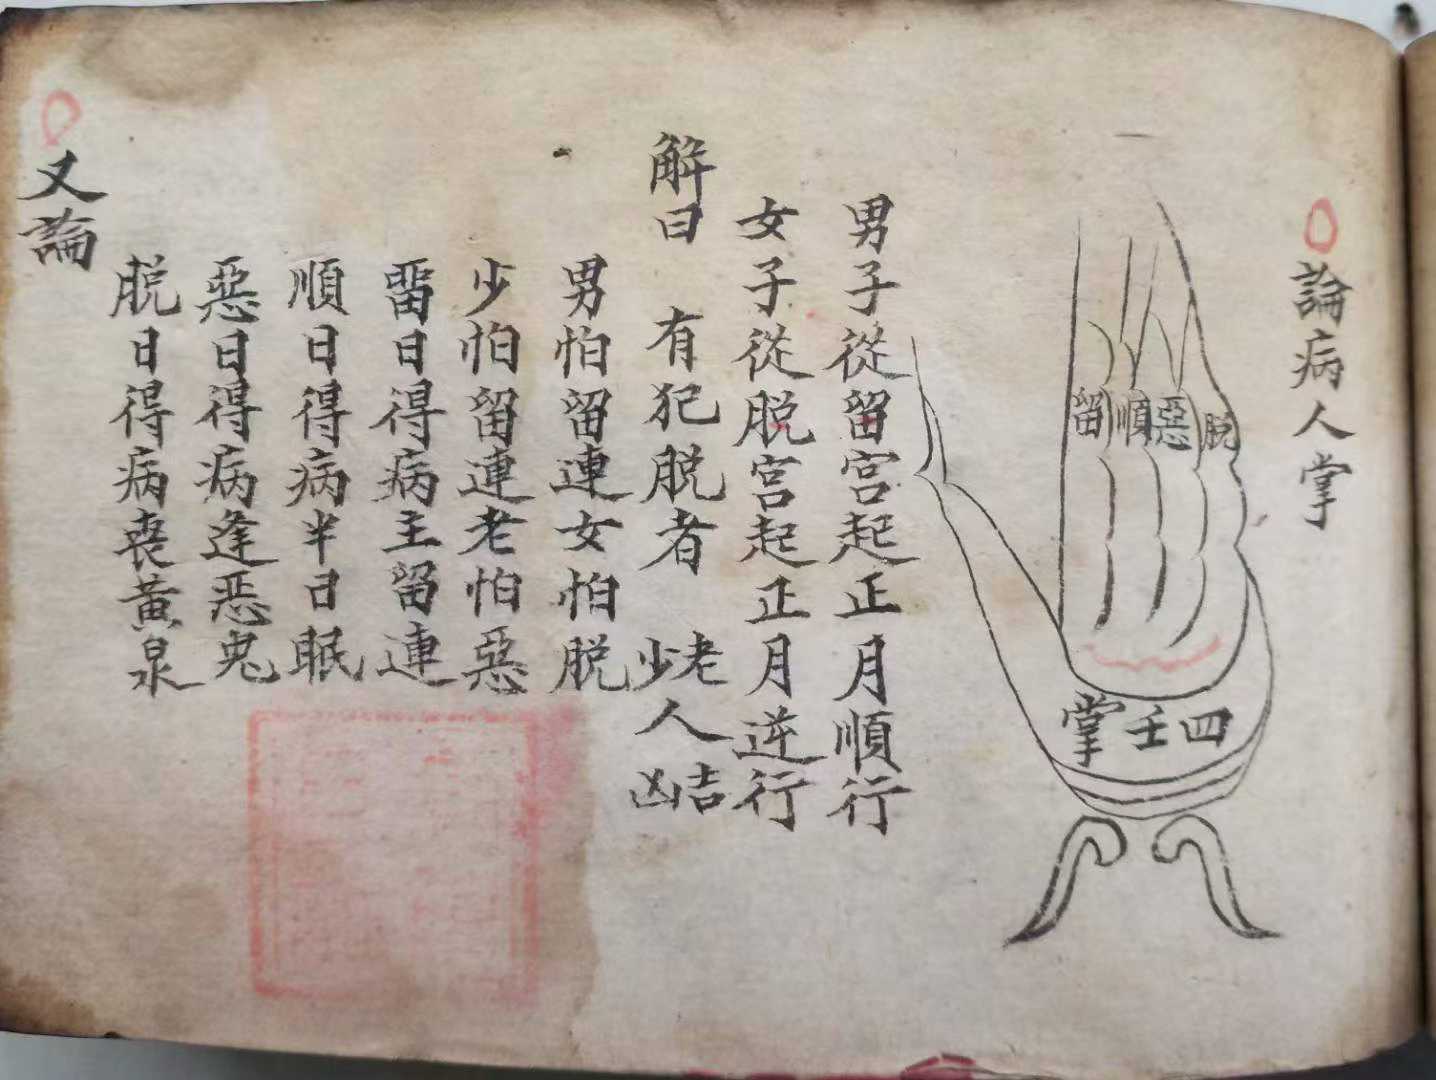 論病人掌
留順惡脫
四壬掌
男子從留宮起正月順行
女子從脫宮起正月逆行
解曰 有犯脫者 老少人吉凶
男怕留連女怕脫
少怕留連老怕惡
畱日得病主留連
順日得病半日眠
惡日得病逢惡鬼
脫日得病喪黃泉
又論